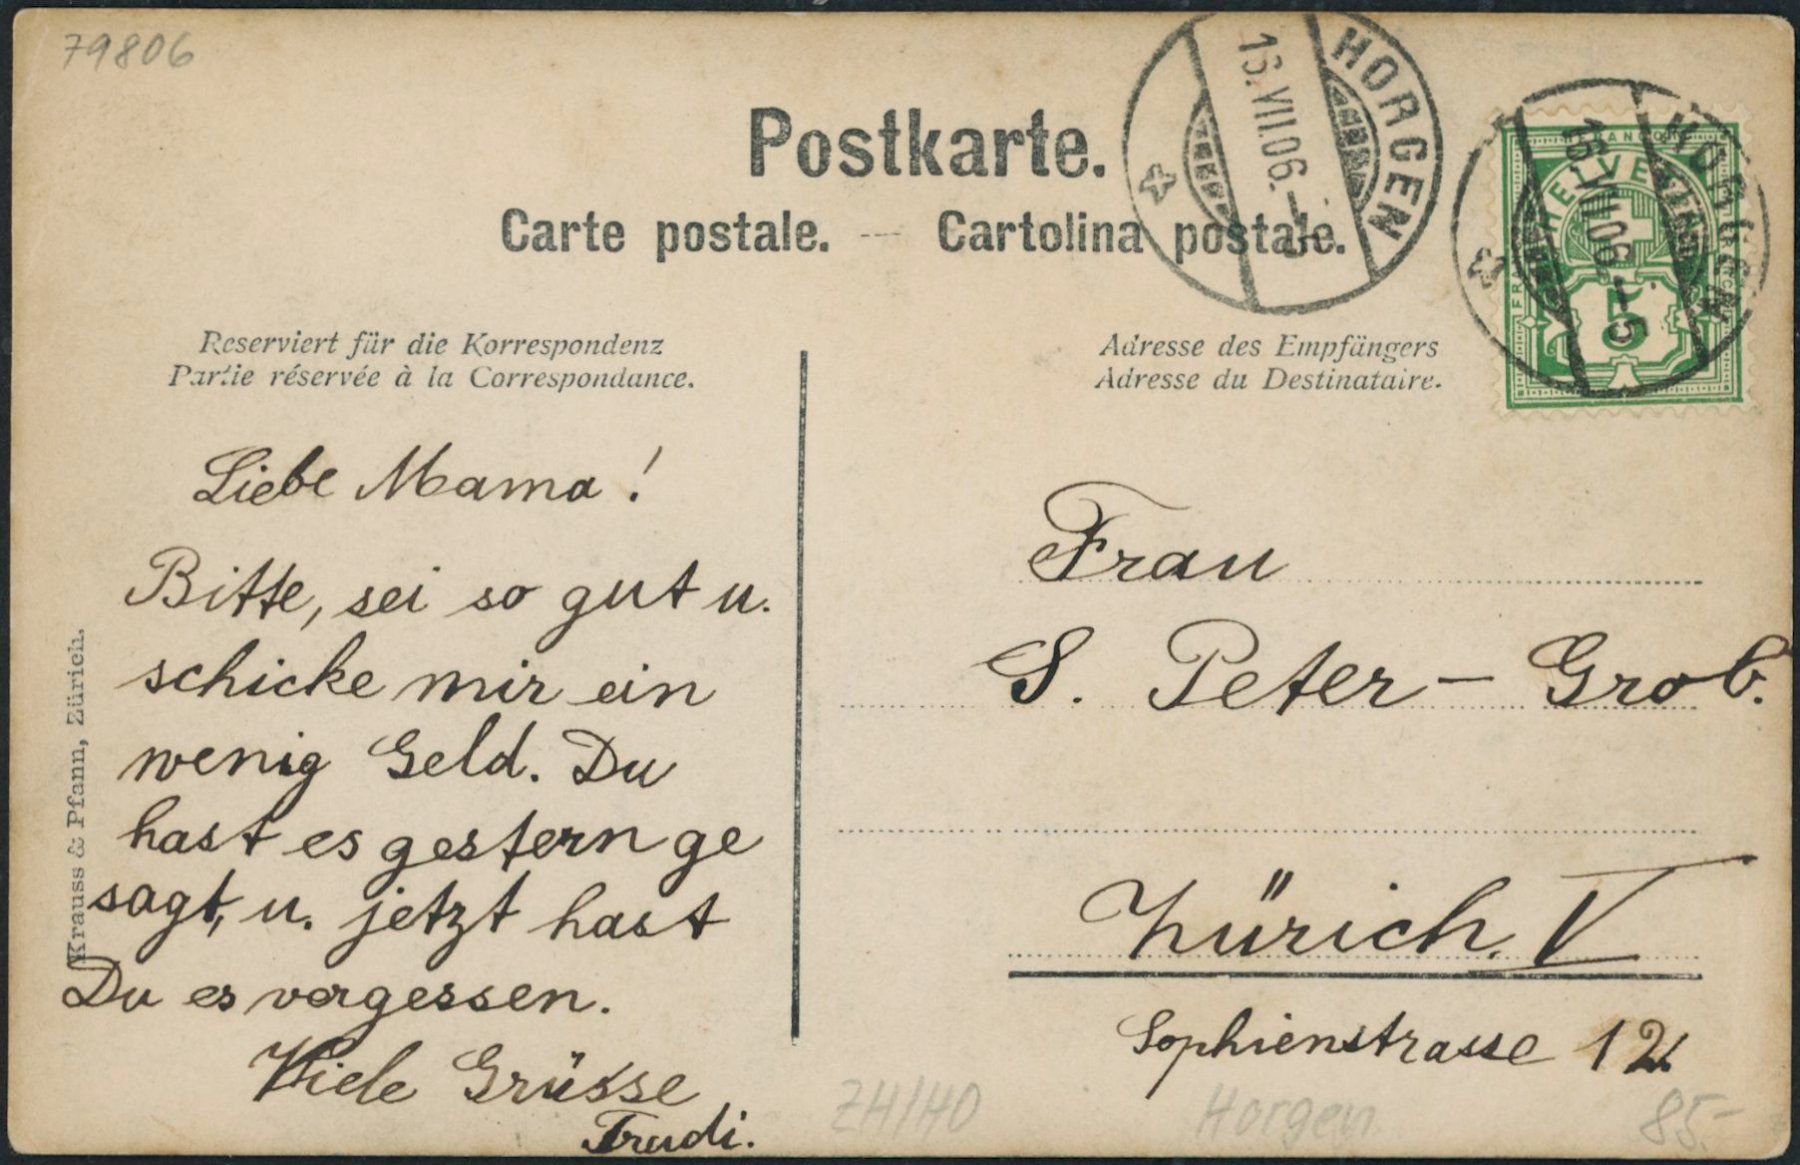 79806
Postkarte.
Carte postale. — Cartolina postale.
HORGEN
16.VII.06.
HORGEN
16.VII.06.-5
FRANCO
HELVETIA
5
Reserviert für die Korrespondenz
Partie réservée à la Correspondance.
Adresse des Empfängers
Adresse du Destinataire.
Liebe Mama!
Bitte, sei so gut u.
schicke mir ein
wenig Geld. Du
hast es gestern ge
sagt, u. jetzt hast
Du es vergessen.
Viele Grüsse
Trudi.
Krauss & Pfann, Zürich.
Frau
S. Peter – Grob.
Zürich. V
Sophienstrasse 12.
ZH/HO
Horgen
85.-